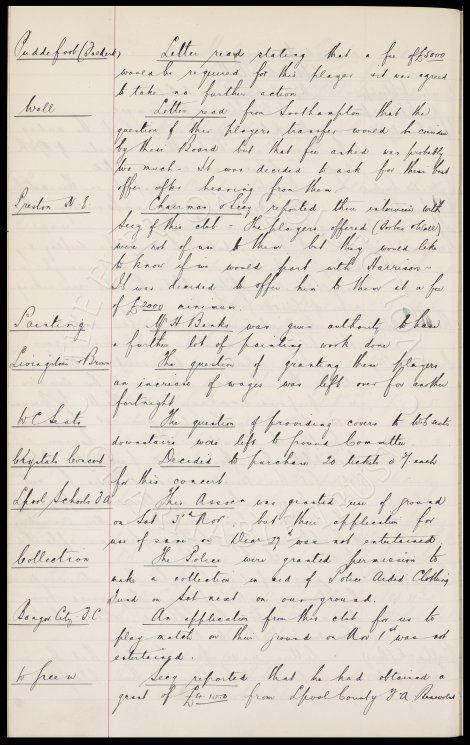 Puddefoot (Blackb) Letter read stating that a fee of £5000
would be required for this player & it was agreed
to take no further action
Wall Letter read from Southampton that the
question of this players transfer would be consider
by their Board but that fee asked was probably
too much - It was decided to ask for their best
offer after hearing from them
Preston N.E. Chairman & Secy reported their interview with
Secy of this club - The players offered ( & Wall)
were not of use to them but they would like
to know if we would part with Harrison -
It was decided to offer him to them at a fee
of £2000 minimum.
Painting Mr H Banks was given authority to have
a further lot of painting work done
Livingstone & Brown The question of granting these players
an increase of wages was left over for another
fortnight
W C Seats The question of providing covers to W C seats
downstairs were left to Ground Committee
Crystals Concert Decided to purchase 20 tickets @ 7/- each
for this concert.
Lpool Schools F.A. This Assocn was granted use of ground
on Sat Nov. but their application for
use of same on Decr 27th was not entertained
Collection The Police were granted permission to
make a collection in aid of Police Aided Clothing
Fund on Sat next on our ground.
Bangor City F.C. An application from this club for us to
play match on their ground on Nov 1st was not
entertained.
W Green Secy reported that he had obtained a
grant of from Lpool County F A Benevolent